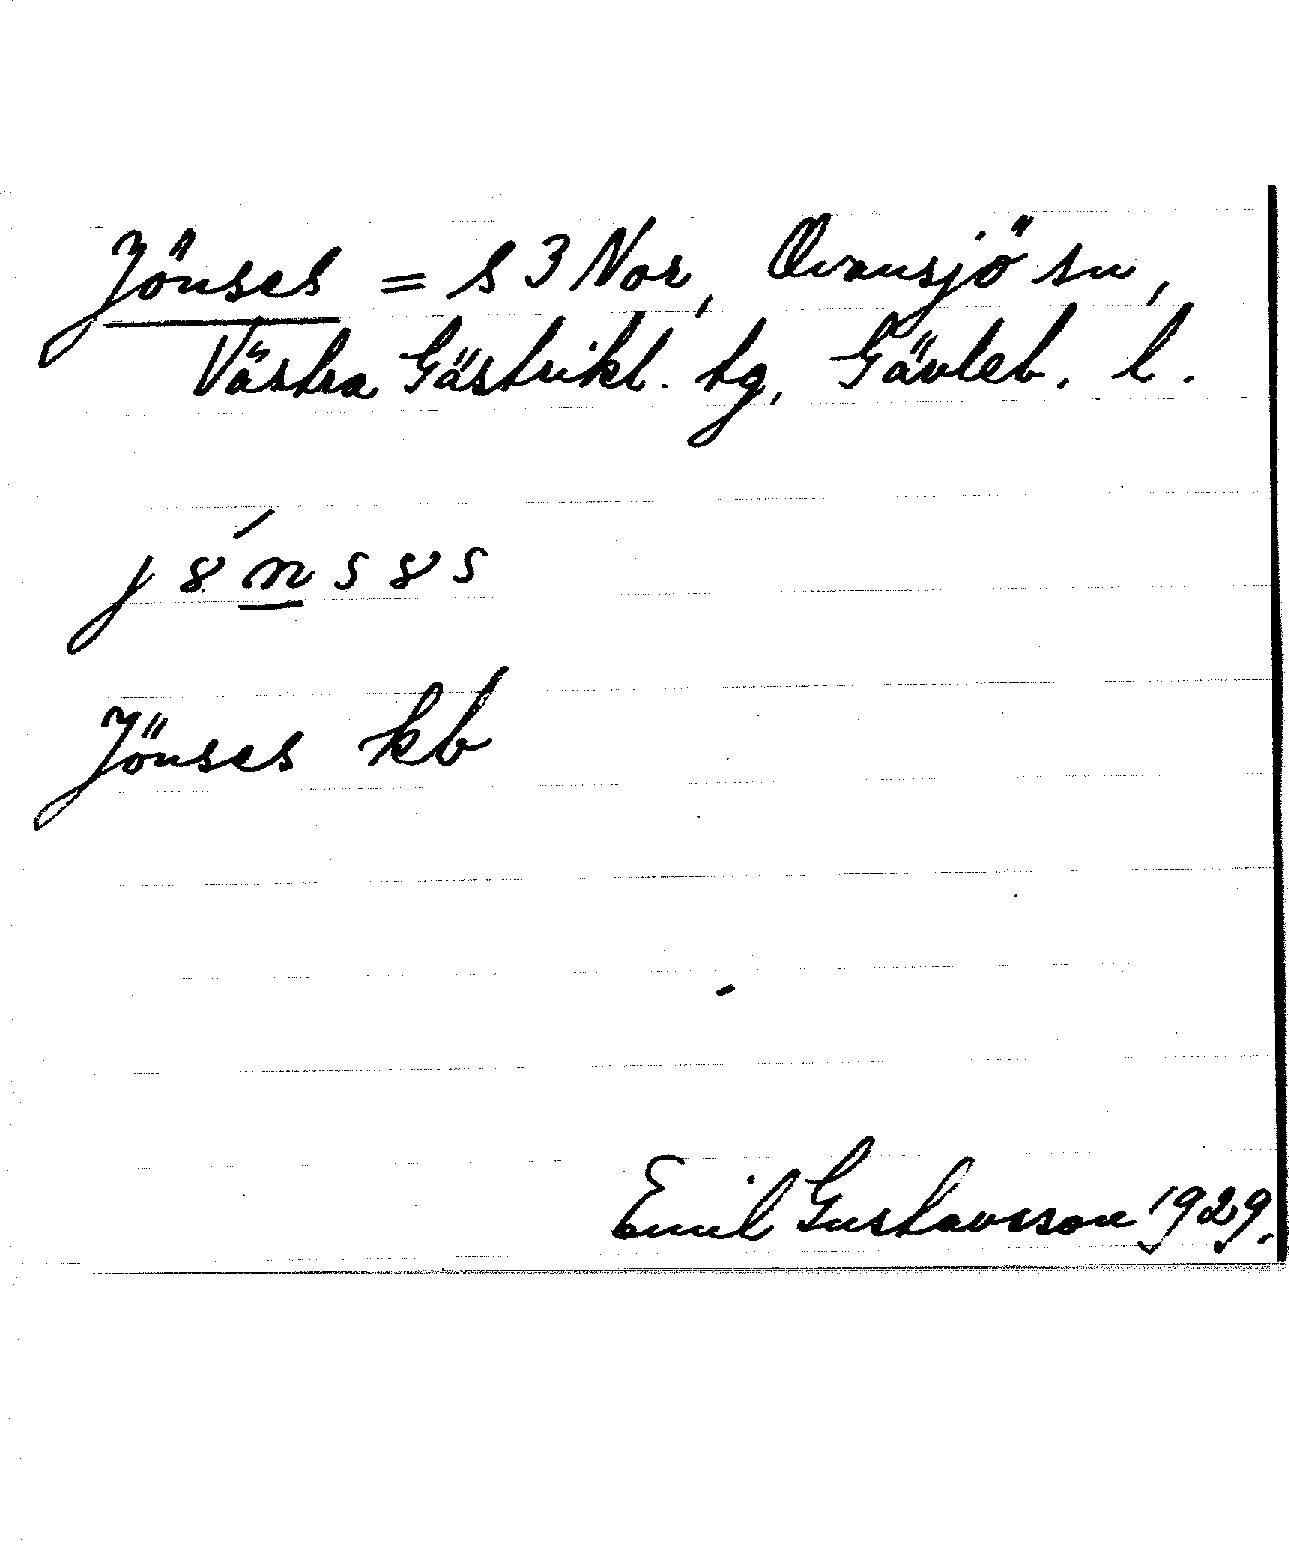 Jönses = s 3 Nor, Ovansjö sn,
Västra Gästrikl. tg, Gävleb. l.
Jönses kb
Emil Gustavsson 1929.